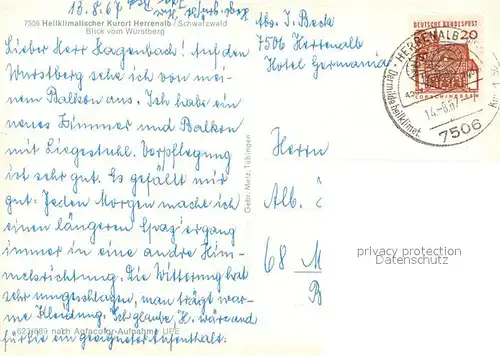 13.8.67
7506 Heilklimatischer Kurort Herrenalb / Schwarzwald
Blick vom Wurstberg
Lieber Herr Hagenbach! Auf den
Wurstberg sehe ich von mei-
nem Balkon aus. Ich habe ein
neues Zimmer und Balkon
mit Liegestuhl. Verpflegung
ist sehr gut. Es gefällt mir
gut. Jeden Morgen mache ich
einen längeren Spaziergang
immer in eine andre Him-
melsrichtung. Die Witterung hat
sehr umgeschlagen, man trägt war-
me Kleidung. Ich glaube, H. wäre auch
für Sie ein geeigneter Aufenthalt.
623/689 nach Agfacolor-Aufnahme UPE
Gebr. Metz, Tübingen
Abs. J. Beck
7506 Herrenalb
Hotel Germania
DEUTSCHE BUNDESPOST
20
HERRENALB
14.-8.67
Der milde heilklimat
7506
Herrn
Alb.
68 M
B
privacy protection
Datenschutz